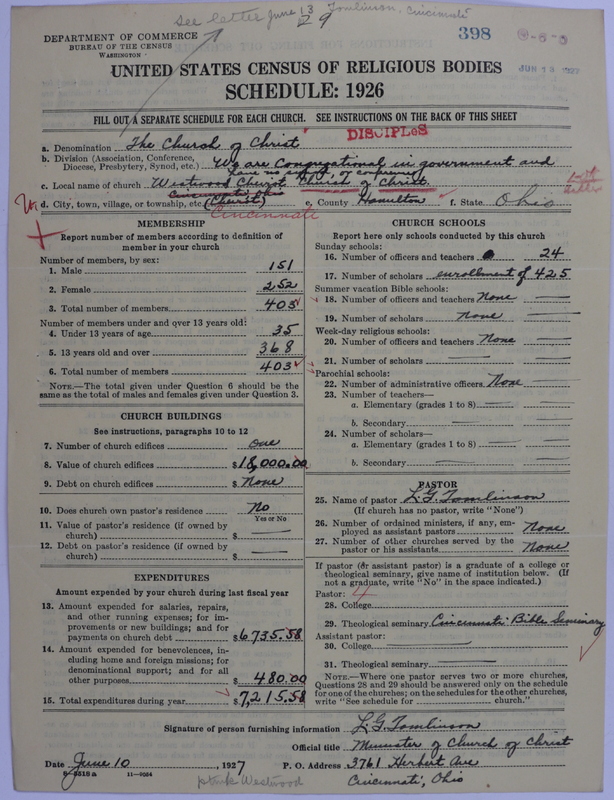 See letter June 13 Tomlinson, Cincinnati
29
DEPARTMENT OF COMMERCE
BUREAU OF THE CENSUS
WASHINGTON
398
JUN 13 1927
UNITED STATES CENSUS OF RELIGIOUS BODIES
SCHEDULE: 1926
FILL OUT A SEPARATE SCHEDULE FOR EACH CHURCH. SEE INSTRUCTIONS ON THE BACK OF THIS SHEET
DISCIPLES
a. Denomination The Church of Christ
b. Division (Association, Conference, Diocese, Presbytery, Synod, etc.) We are Congregational in government and
have no
c. Local name of church Westwood Cheviot Church of Christ.
d. City, town, village, or township, etc. (Cheviot) Cincinnati e. County Hamilton f. State Ohio
MEMBERSHIP
Report number of members according to definition of member in your church
Number of members, by sex:
1. Male 151
2. Female 252
3. Total number of members 403
Number of members under and over 13 years old:
4. Under 13 years of age 35
5. 13 years old and over 368
6. Total number of members 403
NOTE.—The total given under Question 6 should be the same as the total of males and females given under Question 3.
CHURCH BUILDINGS
See instructions, paragraphs 10 to 12
7. Number of church edifices one
8. Value of church edifices $18,000.00
9. Debt on church edifices $ None
10. Does church own pastor's residence No
Yes or No
11. Value of pastor's residence (if owned by church) $
12. Debt on pastor's residence (if owned by church) $
EXPENDITURES
Amount expended by your church during last fiscal year
13. Amount expended for salaries, repairs, and other running expenses; for improvements or new buildings; and for payments on church debt $6735.58
14. Amount expended for benevolences, including home and foreign missions; for denominational support; and for all other purposes $480.00
15. Total expenditures during year $7,215.58
CHURCH SCHOOLS
Report here only schools conducted by this church
Sunday schools:
16. Number of officers and teachers 24
17. Number of scholars enrollment of 425
Summer vacation Bible schools:
18. Number of officers and teachers None
19. Number of scholars None
Week-day religious schools:
20. Number of officers and teachers None
21. Number of scholars
Parochial schools:
22. Number of administrative officers None
23. Number of teachers—
a. Elementary (grades 1 to 8)
b. Secondary
24. Number of scholars—
a. Elementary (grades 1 to 8)
b. Secondary
PASTOR
25. Name of pastor L.G. Tomlinson
(If church has no pastor, write "None")
26. Number of ordained ministers, if any, employed as assistant pastors None
27. Number of other churches served by the pastor or his assistants None
If pastor (or assistant pastor) is a graduate of a college or theological seminary, give name of institution below. (If not a graduate, write "No" in the space indicated.)
Pastor: 4
28. College
29. Theological seminary Cincinnati Bible Seminary
Assistant pastor:
30. College
31. Theological seminary
NOTE.—Where one pastor serves two or more churches, Questions 28 and 29 should be answered only on the schedule for one of the churches; on the schedules for the other churches, write "See schedule for church."
Signature of person furnishing information L.G. Tomlinson
Official title Minister of Church of Christ
Date June 10, 1927 P. O. Address 3761 Herbert Ave
8-5518a 11-9054 Cincinnati, Ohio
Westwood